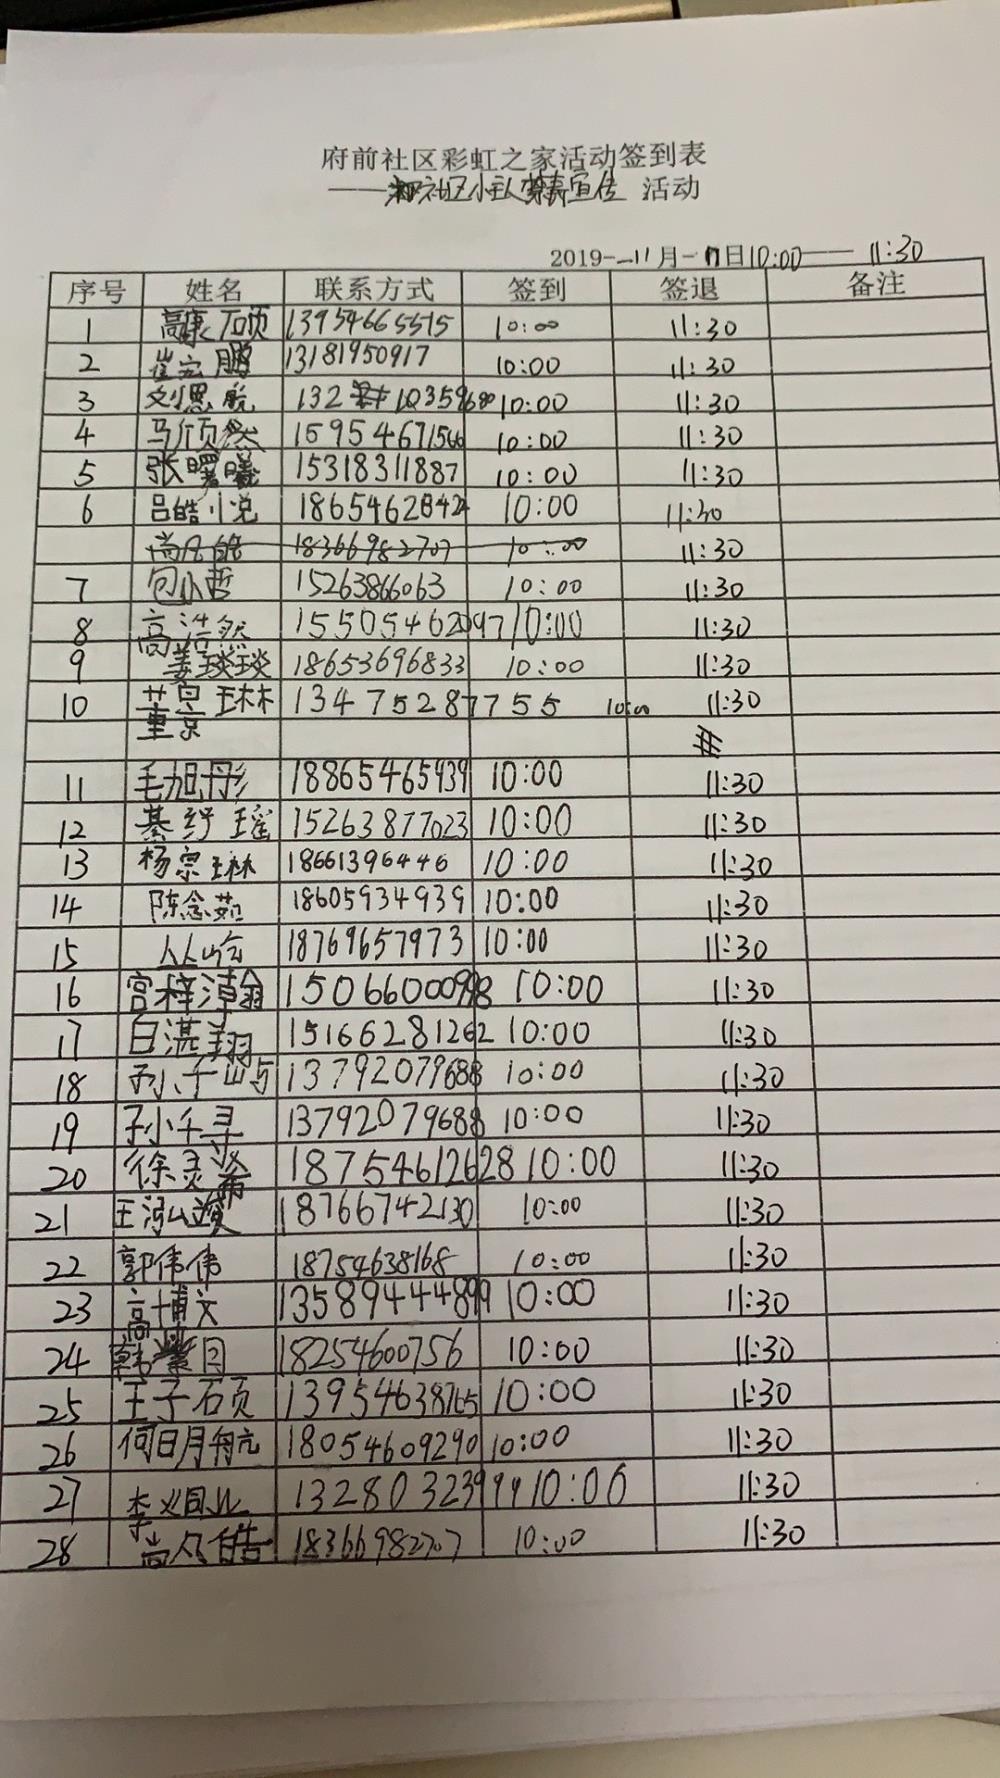 府前社区彩虹之家活动签到表
——社区小主人禁毒宣传 活动
2019-11月-17日10:00——11:30
序号 姓名 联系方式 签到 签退 备注
1 高康硕 13954665515 10:00 11:30
2 崔宏鹏 13181950917 10:00 11:30
3 刘恩航 132 10359680 10:00 11:30
4 马颀然 15954671566 10:00 11:30
5 张曙曦 15318311887 10:00 11:30
6 吕皓小说 18654628424 10:00 11:30
尚凡皓 18366982707 10:00 11:30
7 包小哲 15263866063 10:00 11:30
8 高浩然 15505462097 10:00 11:30
9 姜琰琰 18653696833 10:00 11:30
10 董景琳 13475287755 10:00 11:30
11 毛旭彤 18865465939 10:00 11:30
12 綦纾瑶 15263877023 10:00 11:30
13 杨宗琳 18661396446 10:00 11:30
14 陈念茹 18605934939 10:00 11:30
15 18769657973 10:00 11:30
16 宫梓漳翁 15066000998 10:00 11:30
17 白湛翔 15166281262 10:00 11:30
18 孙千屿 13792079688 10:00 11:30
19 孙千寻 13792079688 10:00 11:30
20 徐灵希 18754612628 10:00 11:30
21 王泓逡 18766742130 10:00 11:30
22 郭伟伟 18754638168 10:00 11:30
23 高博文 13589444899 10:00 11:30
24 韩 18254600756 10:00 11:30
25 王子硕 13954638765 10:00 11:30
26 何明航 18054609290 10:00 11:30
27 李义国 1328032399 10:00 11:30
28 尚凡皓 18366982707 10:00 11:30